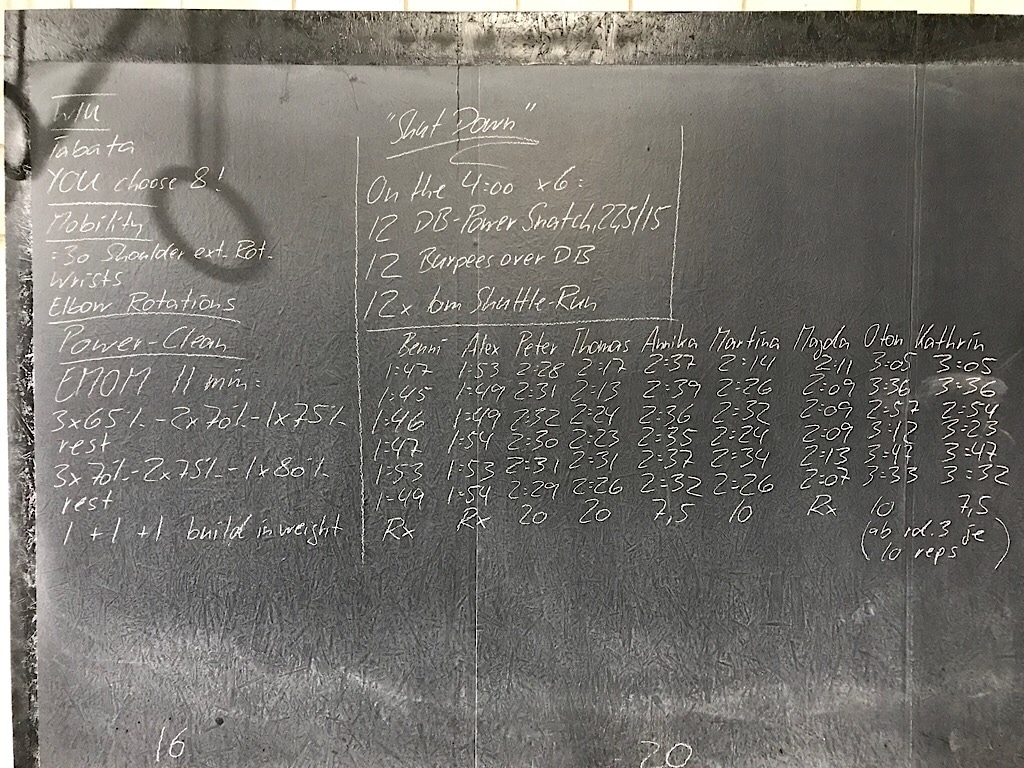 W/U
Tabata
YOU choose 8!
Mobility
:30 Shoulder ext. Rot.
Wrists
Elbow Rotations
Power-Clean
EMOM 11 min:
3x65% - 2x70% - 1x75%
rest
3x70% - 2x75% - 1x80%
rest
1 + 1 + 1 build in weight
"Shut Down"
On the 4:00 x6:
12 DB-Power Snatch, 22,5/15
12 Burpees over DB
12x 10m Shuttle-Run
Benni Alex Peter Thomas Annika Martina Magda Oton Kathrin
1:47 1:53 2:28 2:17 2:37 2:14 2:11 3:05 3:05
1:45 1:49 2:31 2:13 2:39 2:26 2:09 3:36 3:36
1:46 1:49 2:32 2:24 2:36 2:32 2:09 2:57 2:54
1:47 1:54 2:30 2:23 2:35 2:24 2:09 3:12 3:23
1:53 1:53 2:31 2:31 2:37 2:34 2:13 3:47 3:47
1:49 1:54 2:29 2:26 2:32 2:26 2:07 3:33 3:32
Rx Rx 20 20 7,5 10 Rx 10 7,5
(ab rd. 3 je
10 reps)
16 20